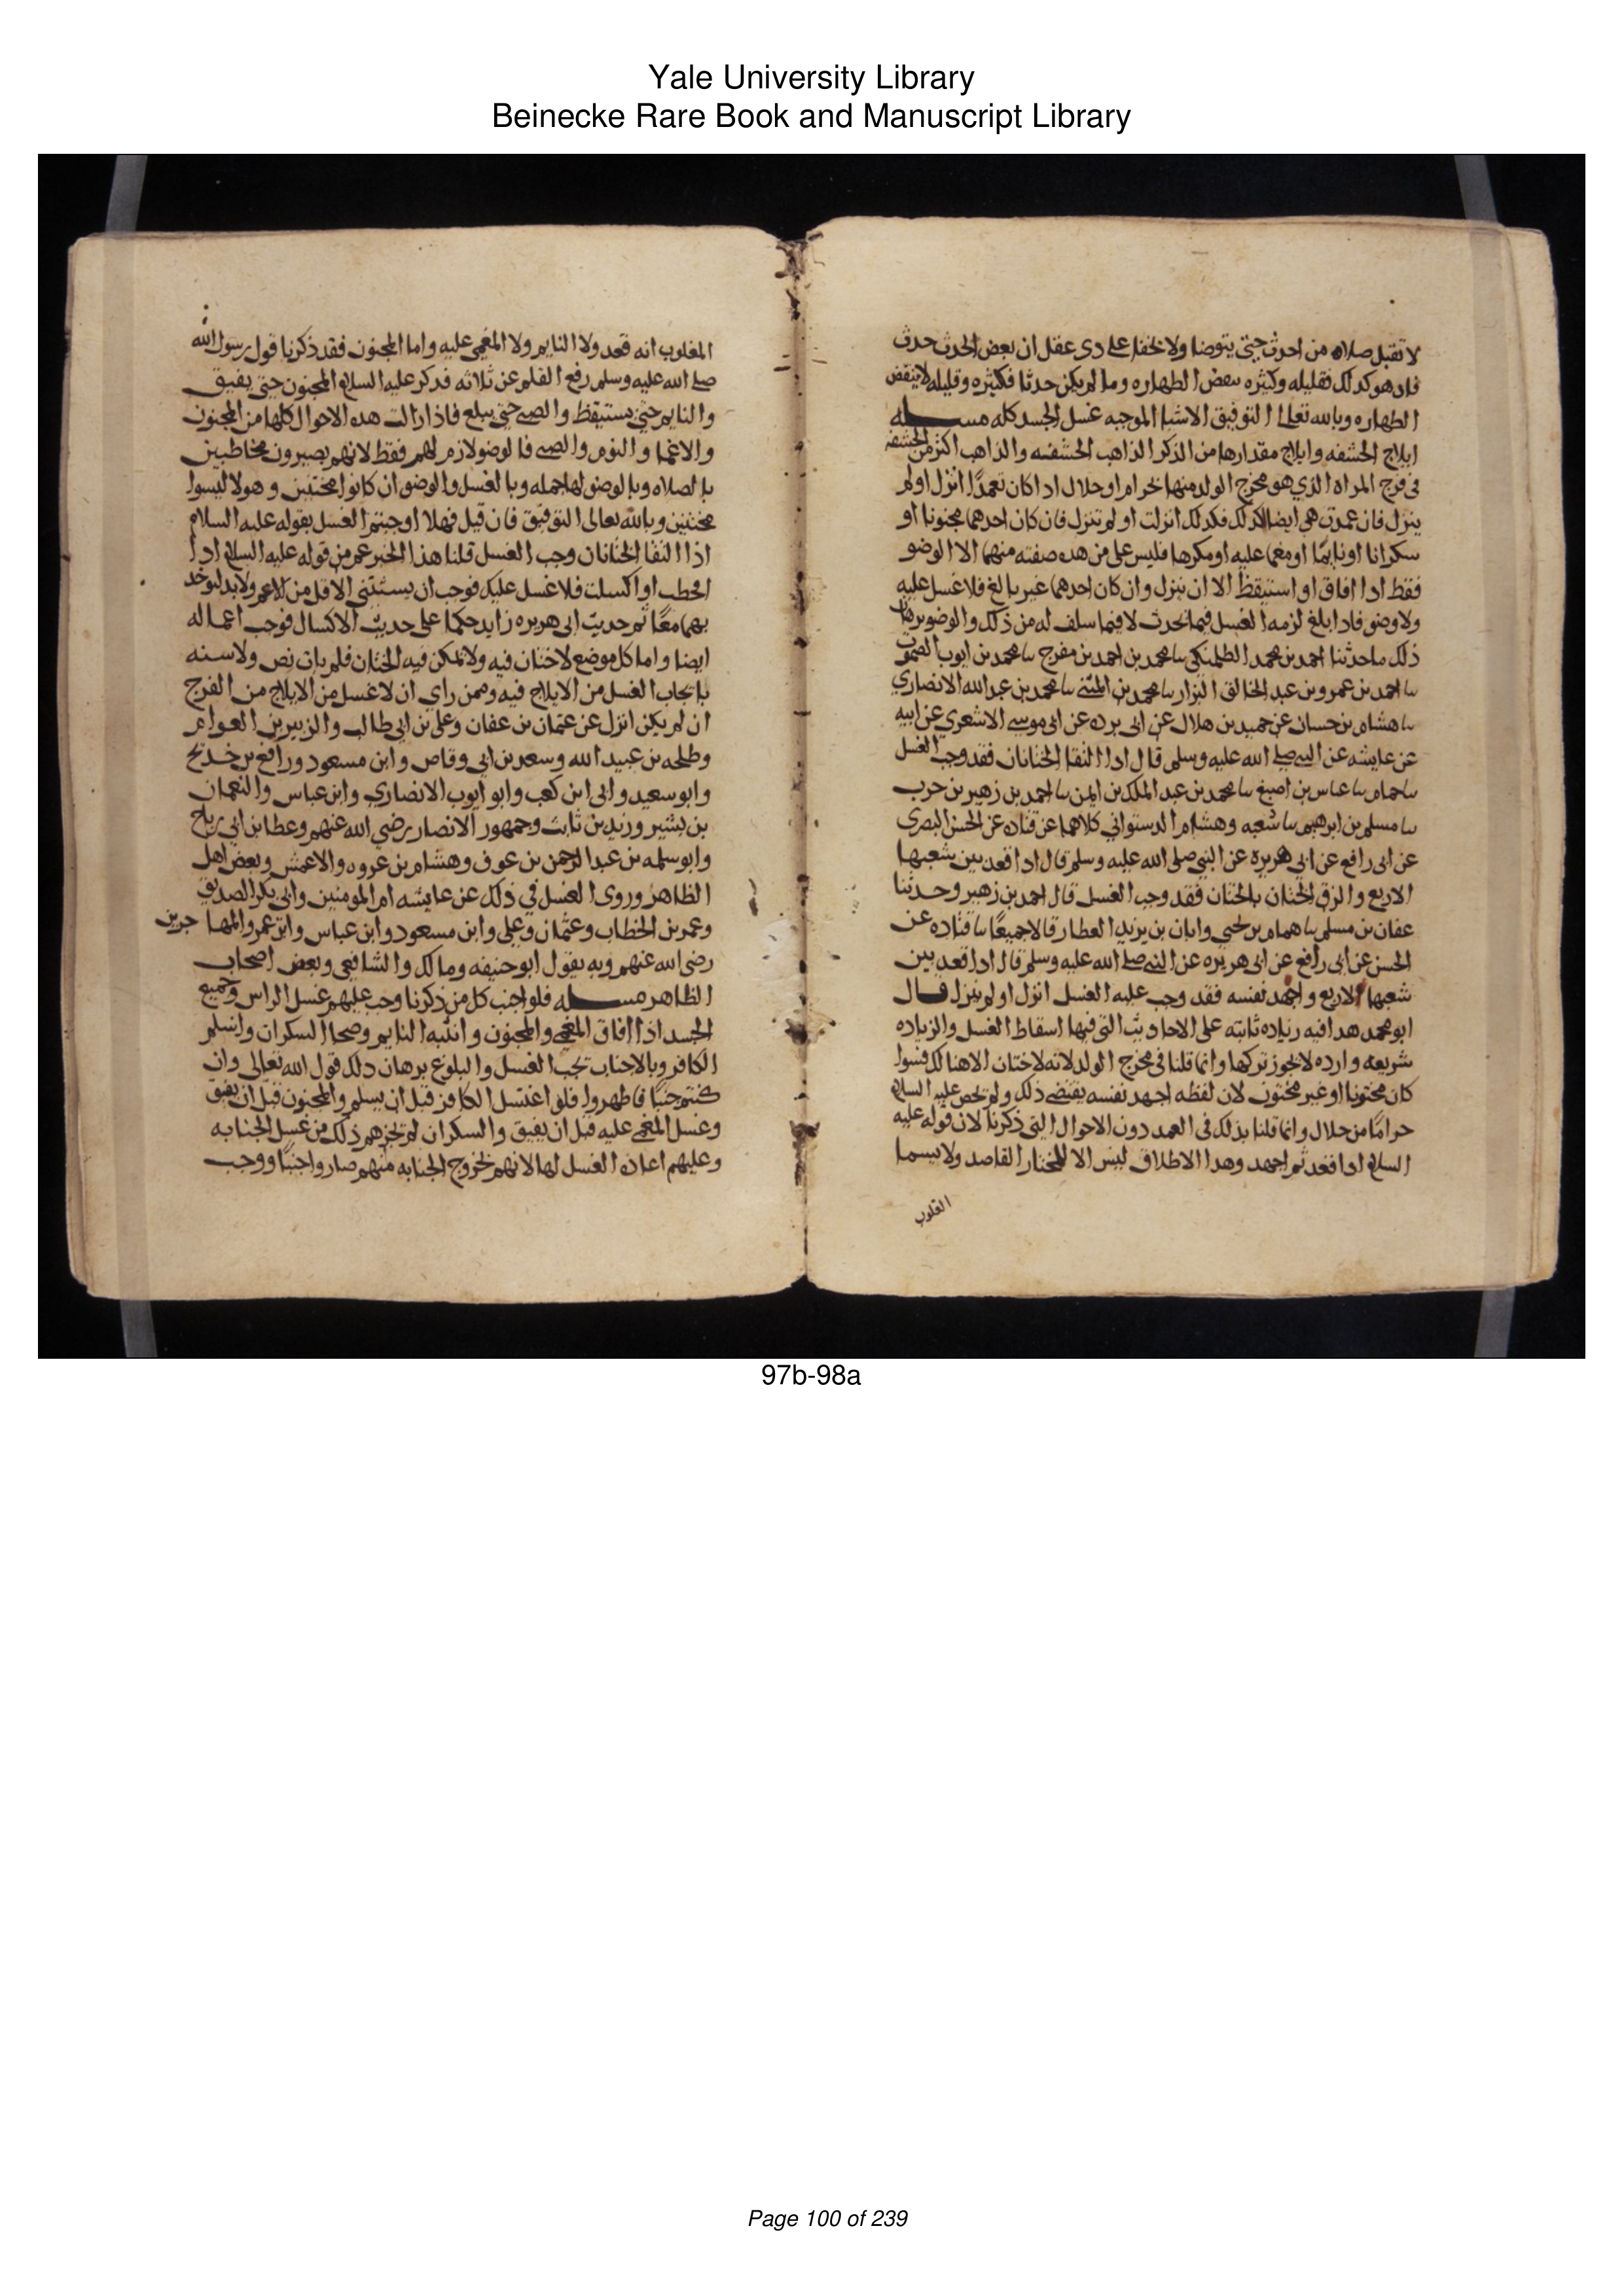 Yale University Library
Beinecke Rare Book and Manuscript Library
لا تقبل صلاه من احدث حتى يتوضا ولا يخفا على دى عقل ان بعض الحدث حدث
فاد هو كدلك فقليله وكثيره ينقض الطهاره وما لم يكن حدثا فكثيره وقليله لا ينقض
الطهاره وبالله تعالى التوفيق الاشيا الموجبه غسل الجسد كله مسله
ايلاج الحشفه وايلاج مقدارها من الذكر الذاهب الحشفه والذاهب اكثر من الحشفه
فى فرج المراه الذي هو مخرج الولد منها حرام او حلال ادا كان تعمدًا انزل او لم
ينزل فان عمدت هي ايضا لذلك فكذلك انزلت او لم تنزل فان كان احدهما مجنونا او
سكرانا او نايما او مغما عليه او مكرها فليس على من هده صفته منهما الا الوضو
فقط ادا افاق او استيقظ الا ان ينزل وان كان احدهما غير بالغ فلا غسل عليه
ولا وضو فادا بلغ لزمه الغسل فيما يحدث لا فيما سلف له من ذلك والوضو برهان
ذلك ما حدثنا احمد بن محمد الطلمنكى سا محمد بن احمد بن مفرج سا محمد بن ايوب الصموت
سا احمد بن عمرو بن عبد الخالق البزار سا محمد بن المثنى سا محمد بن عبد الله الانصاري
سا هشام بن حسان عن حميد بن هلال عن ابى برده عن ابى موسى الاشعري عن ابيه
عن عايشه عن النبي صلى الله عليه وسلم قال ادا التقا الختانان فقد وجب الغسل
سا حمام سا عباس بن اصبغ سا محمد بن عبد الملك بن ايمن سا احمد بن زهير بن حرب
سا مسلم بن ابرهيم سا شعبه وهشام الدستواني كلاهما عن قتاده عن الحسن البصرى
عن ابى رافع عن ابي هريره عن النبي صلى الله عليه وسلم قال ادا قعد بين شعبها
الاربع والزق الختان بالختان فقد وجب الغسل قال احمد بن زهير وحدثنا
عفان بن مسلم سا همام بن يحيى وابان بن يزيد العطار قالا جميعًا سا قتاده عن
الحسن عن ابى رافع عن ابى هريره عن النبي صلى الله عليه وسلم قال ادا قعد بين
شعبها الاربع واجهد نفسه فقد وجب عليه الغسل انزل او لم ينزل قال
ابو محمد هدا فيه زياده ثابته على الاحاديث التي فيها اسقاط الغسل والزياده
شريعه وارده لا يجوز تركها وانما قلنا فى مخرج الولد لانه لا ختان الا هنالك فسوا
كان مختونا او غير مختون لان لفظه اجهد نفسه يقتضى ذلك ولم يخص عليه السلام
حرامًا من حلال وانما قلنا بذلك فى العمد دون الاحوال التى ذكرنا لان قوله عليه
السلام ادا قعد ثم اجهد وهدا الاطلاق ليس الا للمختار القاصد ولا يسما
المغلوب انه قعد ولا النايم ولا المغمى عليه واما المجنون فقد ذكرنا قول رسول الله
صلى الله عليه وسلم رفع القلم عن ثلاثه فدكر عليه السلام المجنون حتى يفيق
والنايم حتى يستيقظ والصبي حتى يبلغ فاذا زالت هده الاحوال كلها من المجنون
والاغما والنوم والصبى فالوضو لازم لهم فقط لانهم يصيرون مخاطبين
بالصلاه وبالوضو لها جمله وبالغسل والوضو ان كانوا مجتنبين وهولا ليسوا
مجتنبين وبالله تعالى التوفيق فان قيل فهلا اوجبتم الغسل بقوله عليه السلام
اذا التقا الختانان وجب الغسل قلنا هذا الخبر عم من قوله عليه السلام ادا
اقحطت او اكسلت فلا غسل عليك فوجب ان يستثنى الاقل من الاعم ولابد ليوخذ
بهما معًا ثم حديث ابى هريره زايد حكما على حديث الاكسال فوجب اعماله
ايضا واما كل موضع لا ختان فيه ولا يمكن فيه الختان فلم يات نص ولا سنه
بايجاب الغسل من الايلاج فيه وممن راي ان لا غسل من الايلاج من الفرج
ان لم يكن انزل عن عثمان بن عفان وعلى بن ابى طالب والزبير بن العوام
وطلحه بن عبيد الله وسعد بن ابي وقاص وابن مسعود ورافع بن خديج
وابو سعيد وابى ابن كعب وابو ايوب الانصاري وابن عباس والنعمان
بن بشير وزيد بن ثابت وجمهور الانصار رضي الله عنهم وعطا بن ابي رباح
وابو سلمه بن عبد الرحمن بن عوف وهشام بن عروه والاعمش وبعض اهل
الظاهر وروى الغسل في ذلك عن عايشه ام المومنين وابى بكر الصديق
وعمر بن الخطاب وعثمان وعلى وابن مسعود وابن عباس وابن عمر والمهاجرين
رضى الله عنهم وبه يقول ابو حنيفه ومالك والشافعى وبعض اصحاب
الظاهر مسله فلو اجنب كل من ذكرنا وجب عليهم غسل الراس وجميع
الجسد اذا افاق المغمى والمجنون وانتبه النايم وصحا السكران واسلم
الكافر وبالاجناب يجب الغسل والبلوغ برهان دلك قول الله تعالى وان
كنتم جنبًا فاطهروا فلو اغتسل الكافر قبل ان يسلم والمجنون قبل ان يفيق
وغسل المغمى عليه قبل ان يفيق والسكران لم يجزهم ذلك من غسل الجنابه
وعليهم اعاده الغسل لها لانهم بخروج الجنابه منهم صاروا جنبًا ووجب
97b-98a
Page 100 of 239